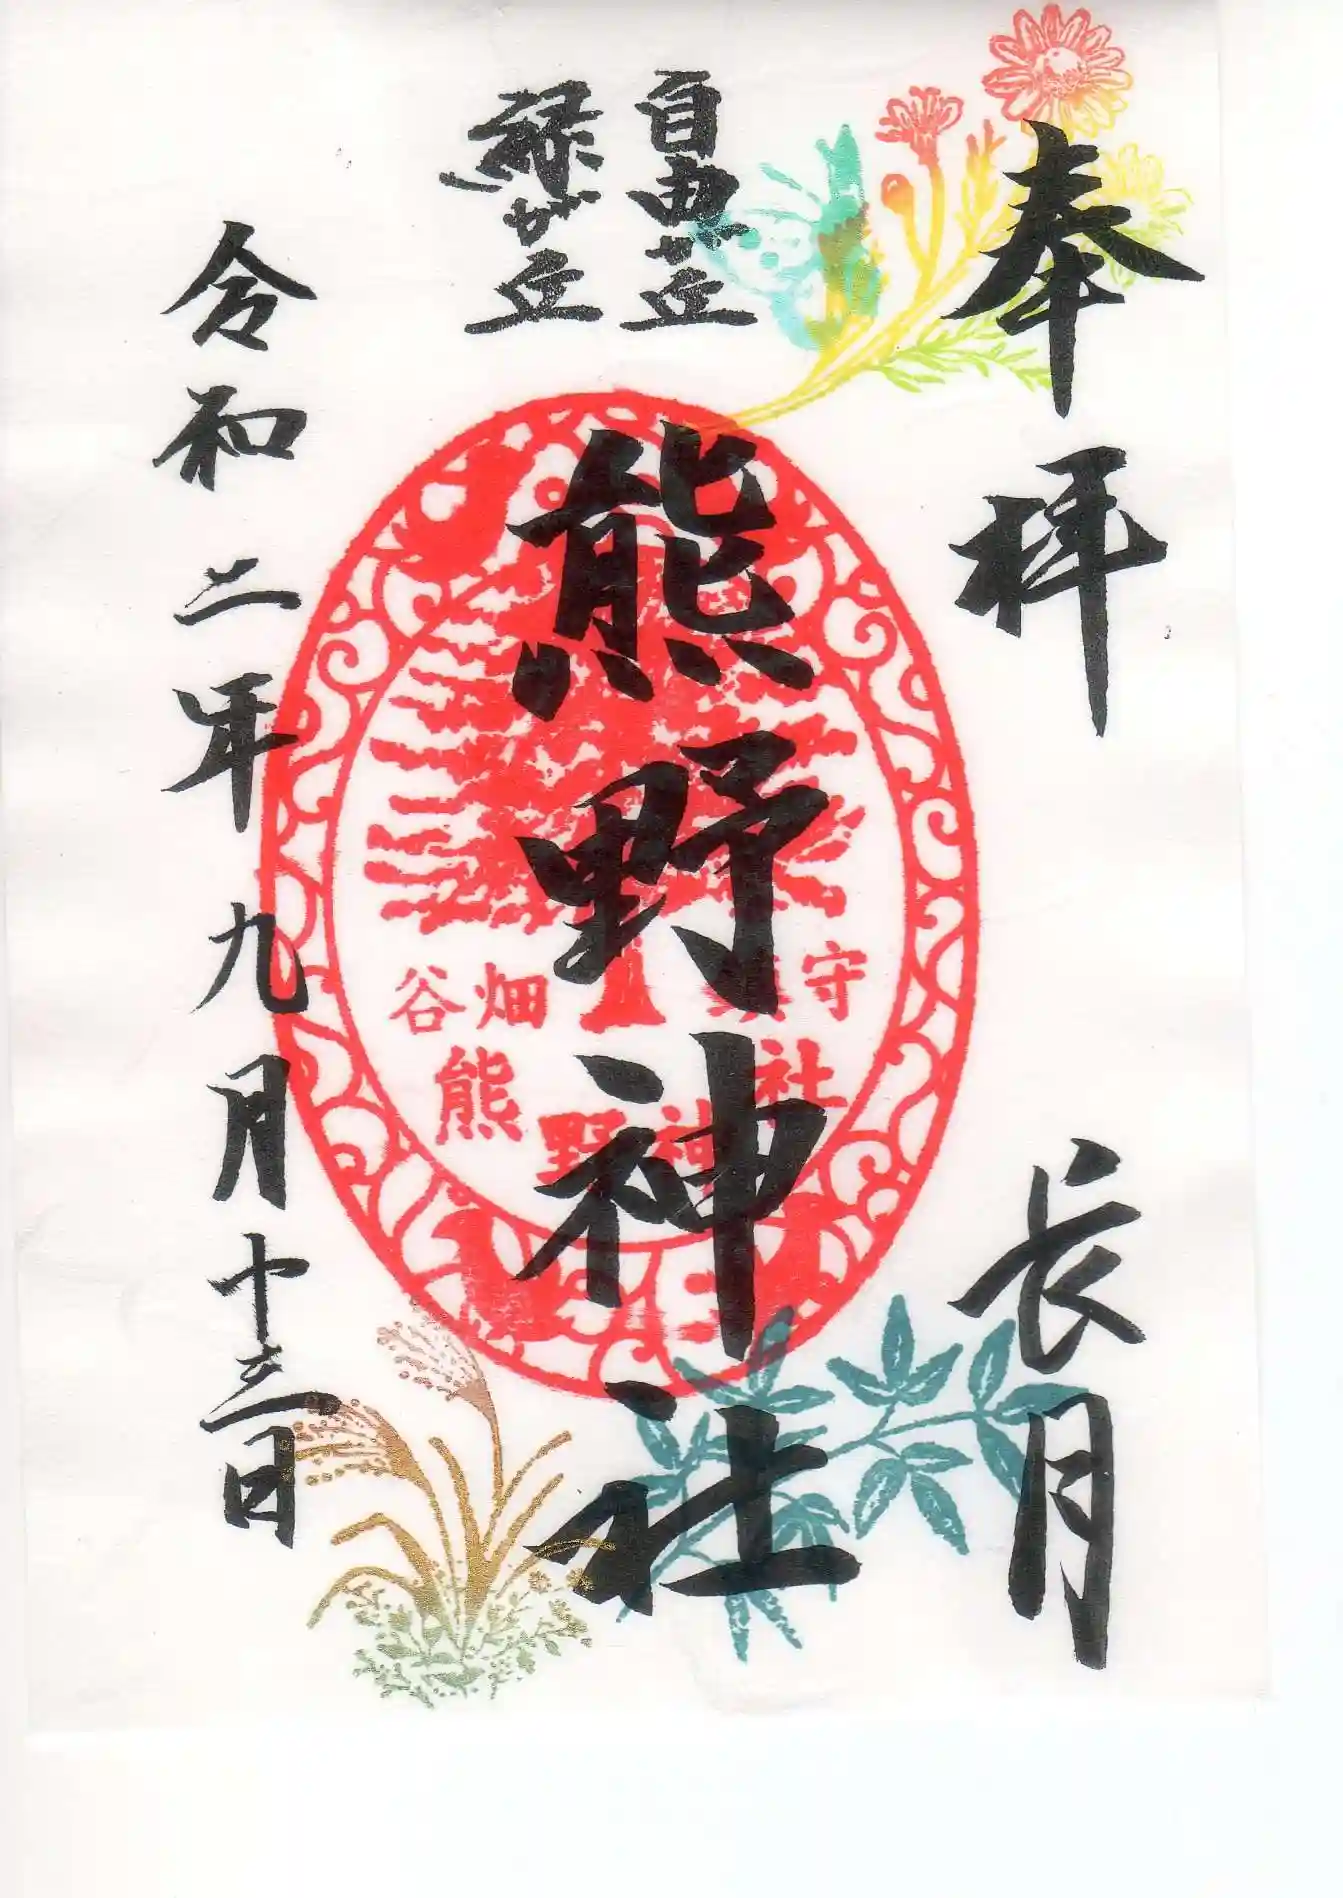 奉拝
長月
自由が丘
緑が丘
熊野神社
谷畑 守
熊野神社
令和二年九月十三日